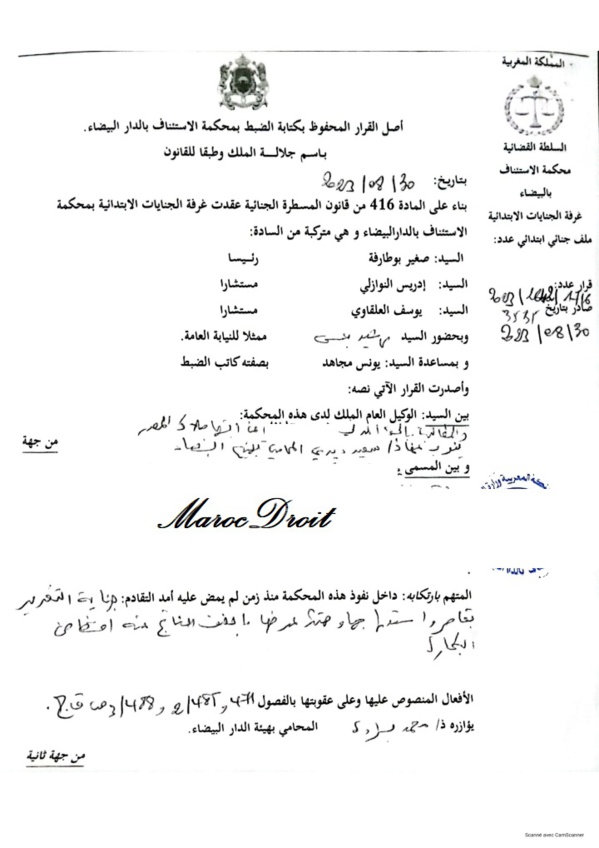 المملكة المغربية
السلطة القضائية
محكمة الاستئناف
بالبيضاء
غرفة الجنايات الابتدائية
ملف جنائي ابتدائي عدد:
قرار عدد:
صادر بتاريخ
2023/08/30
أصل القرار المحفوظ بكتابة الضبط بمحكمة الاستئناف بالدار البيضاء.
باسم جلالة الملك وطبقا للقانون
بتاريخ: 2023/08/30
بناء على المادة 416 من قانون المسطرة الجنائية عقدت غرفة الجنايات الابتدائية بمحكمة
الاستئناف بالدارالبيضاء و هي متركبة من السادة:
السيد: صغير بوطارفة رئيسا
السيد: إدريس النوازلي مستشارا
السيد: يوسف العلقاوي مستشارا
وبحضور السيد ممثلا للنيابة العامة.
و بمساعدة السيد: يونس مجاهد بصفته كاتب الضبط
وأصدرت القرار الآتي نصه:
بين السيد: الوكيل العام الملك لدى هذه المحكمة:
من جهة
و بين المسمى:
Maroc Droit
المتهم بارتكابه: داخل نفوذ هذه المحكمة منذ زمن لم يمض عليه أمد التقادم: جناية التغرير
بقاصر
الأفعال المنصوص عليها وعلى عقوبتها بالفصول
يؤازره ذ/ محمد المحامي بهيئة الدار البيضاء.
من جهة ثانية
Scanné avec CamScanner